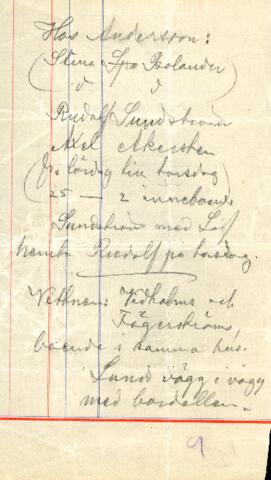 Hos Andersson:
(Stina o Fru Bolander)
d d
Rudolf Sundstrom
Axel Akersten
(fr. lördag till torsdag)
(25 — 2 inneboende
Sundstrom med Löf
hemta Rudolf på torsdag.
Vittnen: Vedholms och
Fägerströms,
boende i samma hus.
Lund vägg i vägg
med bordellen.
9